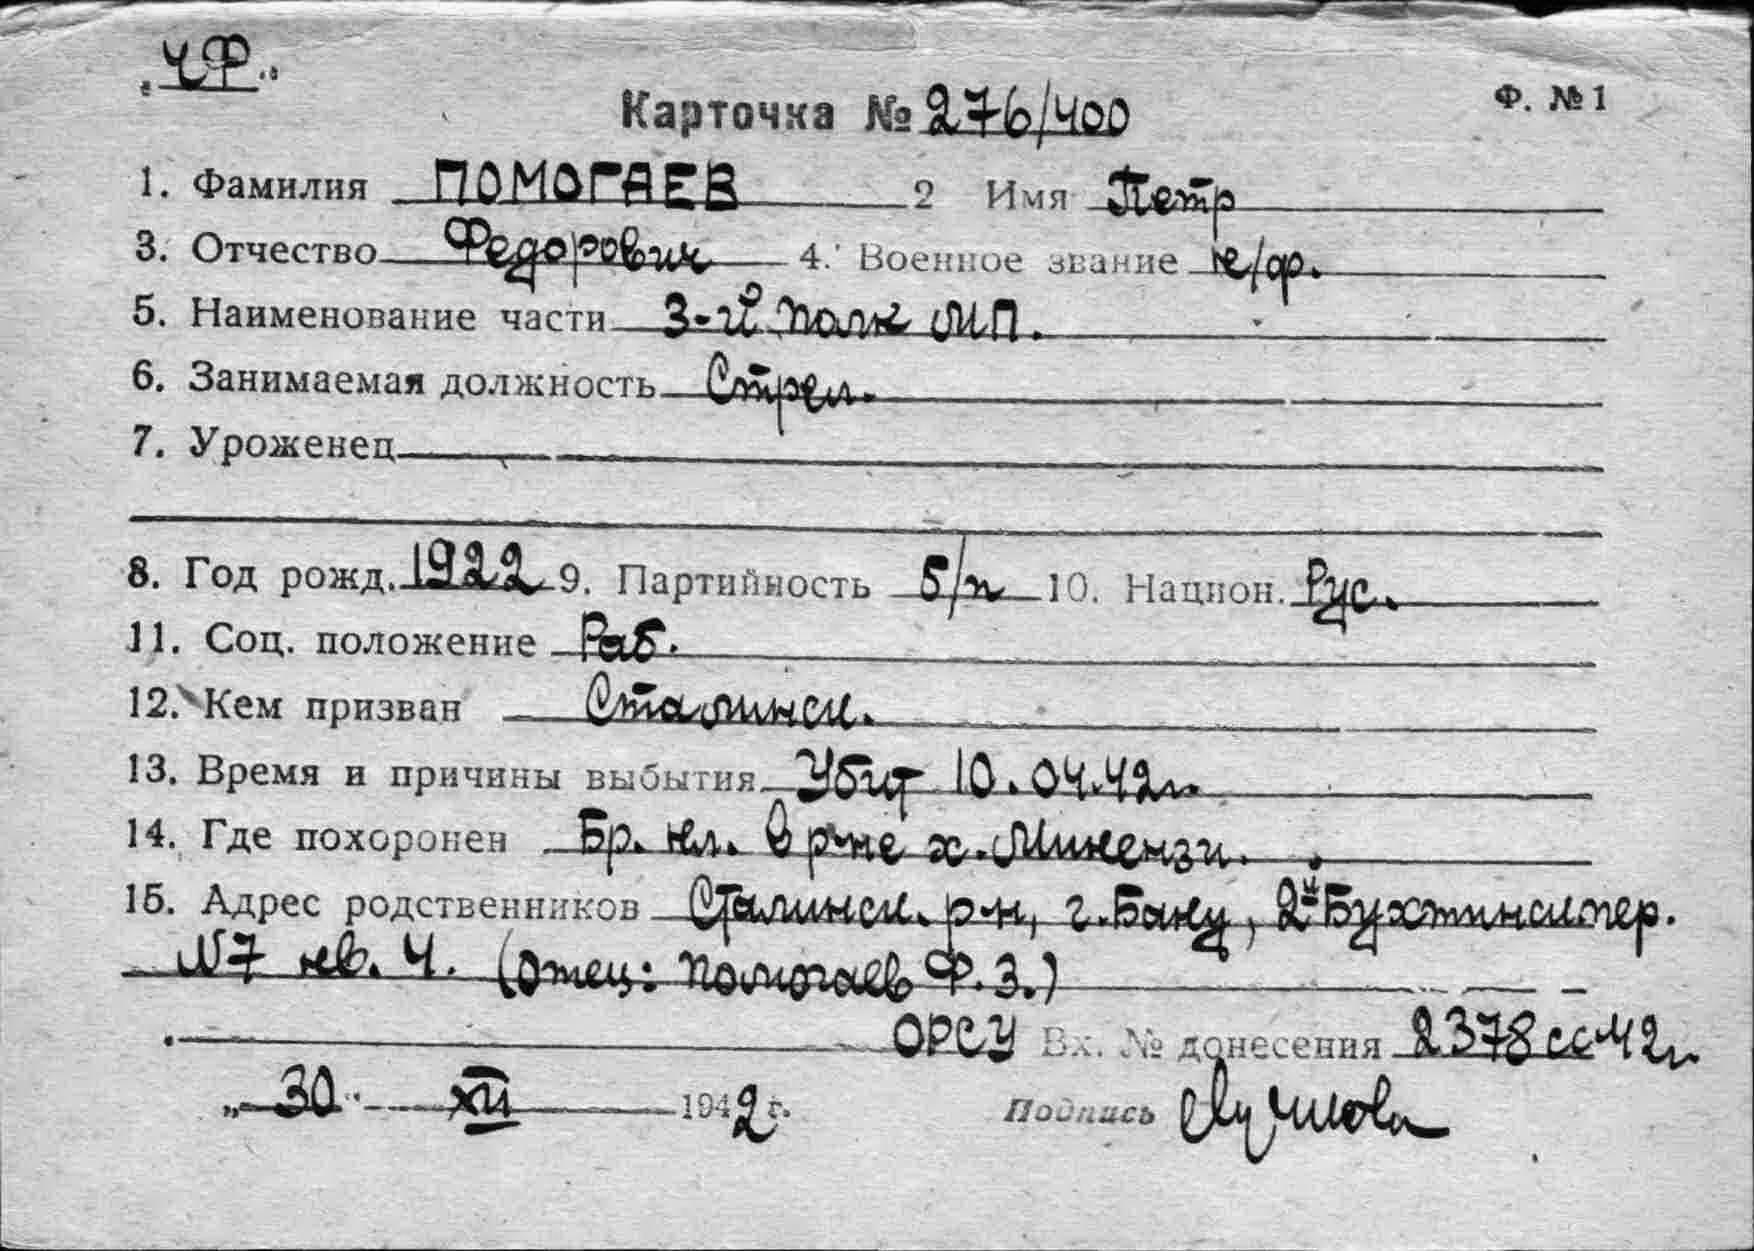 „ЧФ"
Ф. №1
Карточка № 276/400
1. Фамилия ПОМОГАЕВ 2 Имя Петр
3. Отчество Федорович 4. Военное звание к/ф.
5. Наименование части 3-й полк МП.
6. Занимаемая должность Стрел.
7. Уроженец
8. Год рожд. 1922 9. Партийность б/п 10. Национ. Рус.
11. Соц. положение Раб.
12. Кем призван Сталинск.
13. Время и причины выбытия Убит 10.04.42г.
14. Где похоронен Бр. кл. в р-не х. Микензи.
15. Адрес родственников Сталинск. р-н, г. Баку, 2й Бухтинск. пер.
№7 кв. 4. (Отец: Помогаев Ф.З.)
ОРСУ Вх. № донесения 2378сс-42г.
„30" XII 1942 г. Подпись